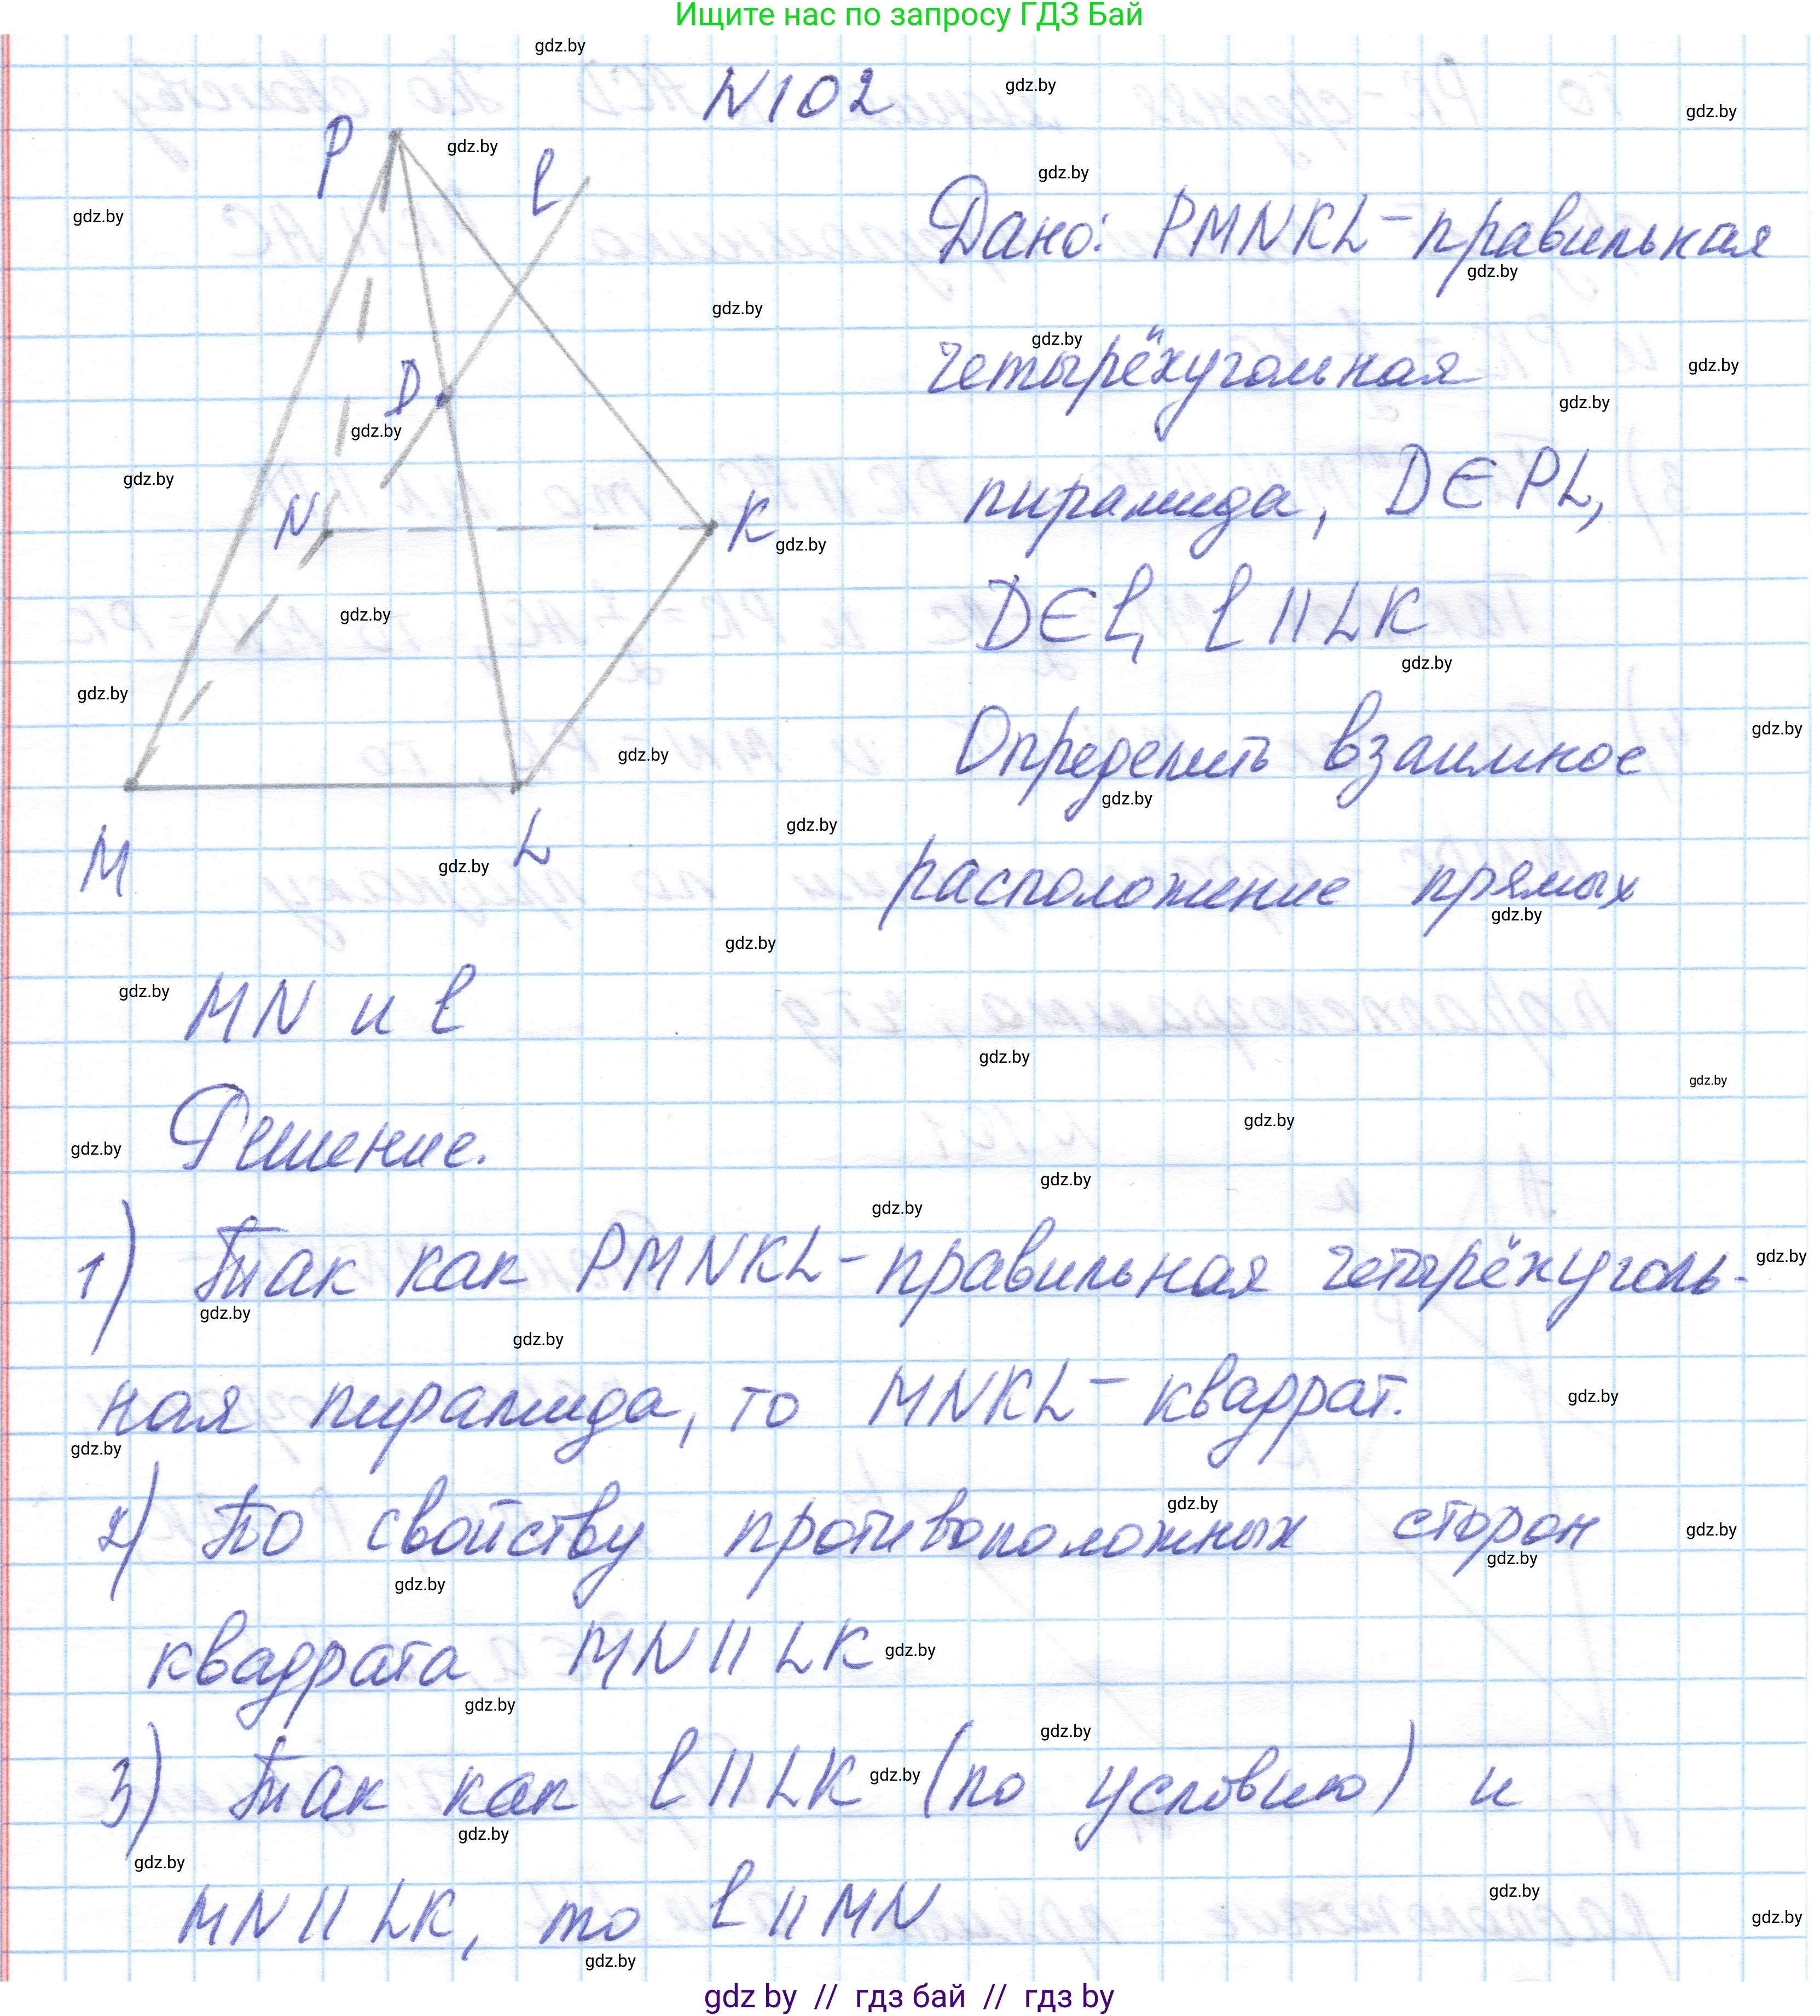 Ищите нас по запросу ГДЗ Бай
N102
P
l
D
N
K
M
L
Дано: PMNKL - правильная
четырёхугольная
пирамида, D∈PL,
D∈l, l || LK
Определить взаимное
расположение прямых
MN и l
Решение.
1) Так как PMNKL - правильная четырёхуголь-
ная пирамида, то MNKL - квадрат.
2) По свойству противоположных сторон
квадрата MN || LK
3) Так как l || LK (по условию) и
MN || LK, то l || MN
gdz.by
gdz by // гдз бай // гдз by